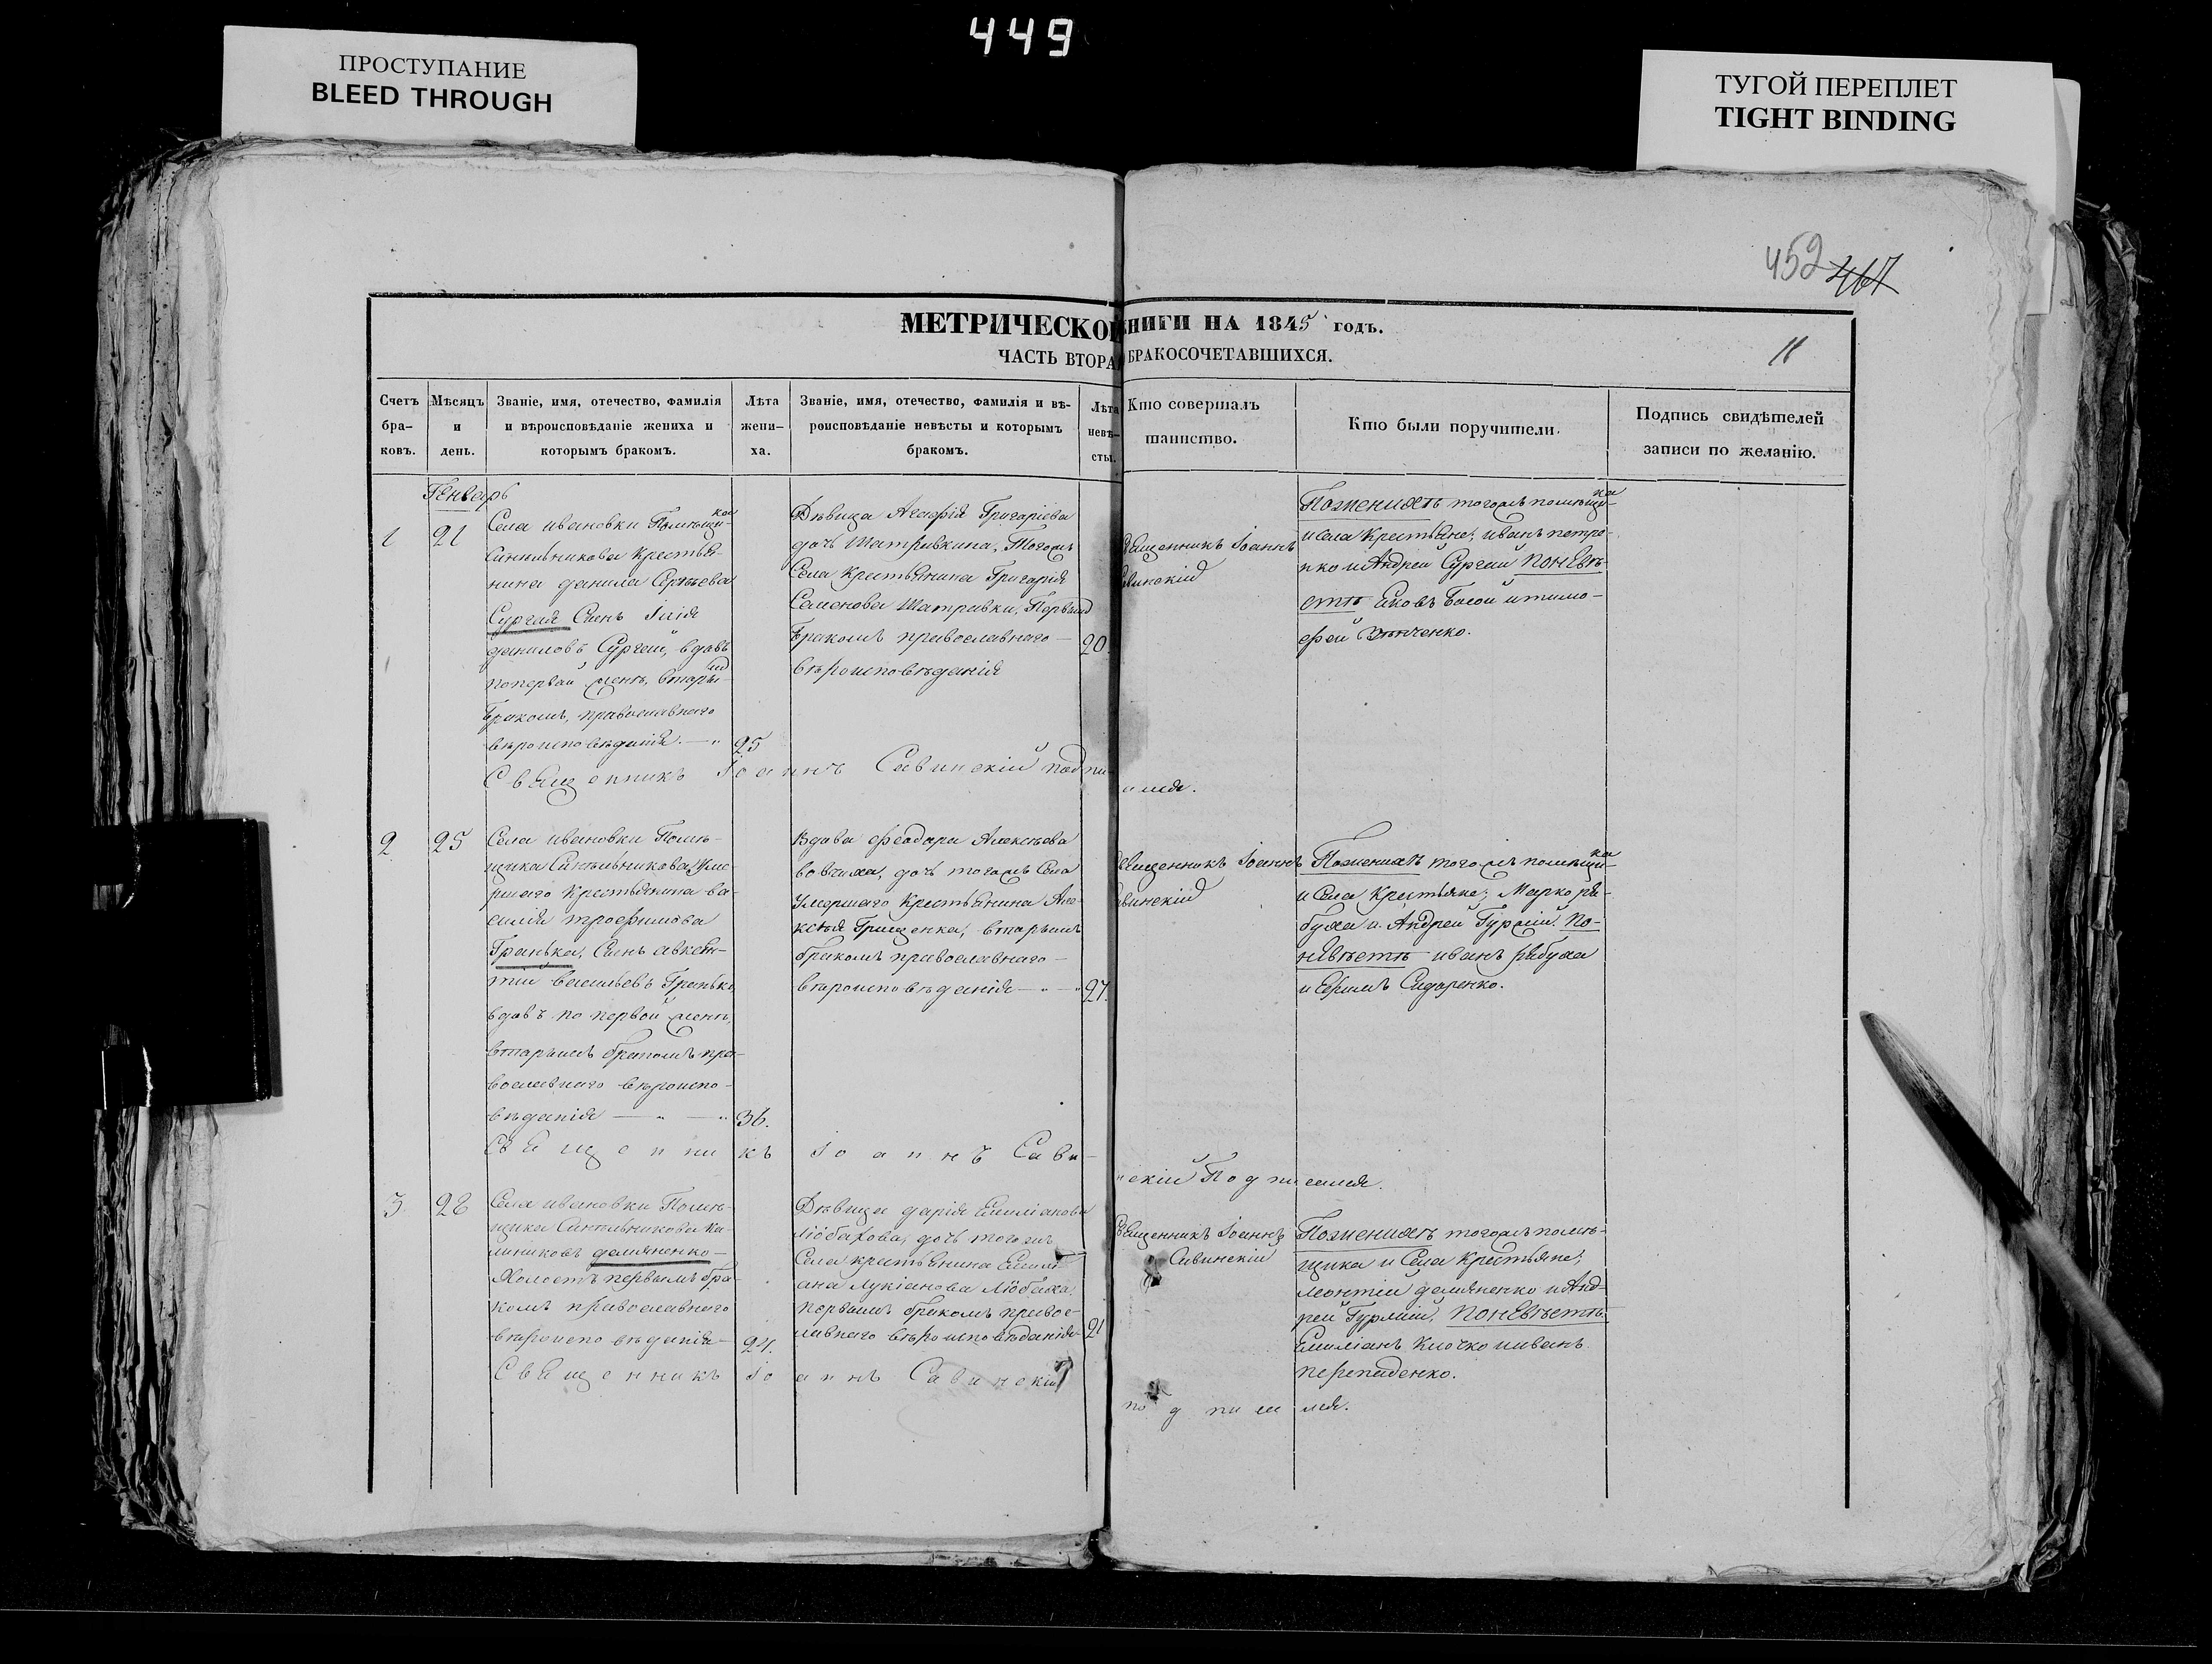 449
ПРОСТУПАНИЕ
BLEED THROUGH
ТУГОЙ ПЕРЕПЛЕТ
TIGHT BINDING
452 467
МЕТРИЧЕСКОЙ КНИГИ НА 1845 годъ.
ЧАСТЬ ВТОРА БРАКОСОЧЕТАВШИХСЯ.
11
Счетъ бра-ковъ.
Мѣсяцъ и день.
Званіе, имя, отечество, фамилія и вѣроисповѣданіе жениха и которымъ бракомъ.
Лѣта жени-ха.
Званіе, имя, отечество, фамилія и вѣ-роисповѣданіе невѣсты и которымъ бракомъ.
Лѣта невѣ-сты.
Кто совершалъ таинство.
Кто были поручители.
Подпись свидѣтелей записи по желанію.
Генварь
1
21
Села ивановки Помѣщи-ка
Синельникова крестья-
нина данила Сергѣева
Сургая Сынъ Илія
даниловъ Сургай, вдовъ
попервой женѣ, вторы-мъ
бракомъ, православнаго
вѣроисповѣданія.
25
Дѣвица Агафія Григоріева
дочь Шатривкина, Тогожъ
Села Крестьянина Григорія
Семенова Шатривки, Первымъ
бракомъ православнаго
вѣроисповѣданія
20.
Священникъ Іоаннъ
Савинскій
Поженихѣ тогожъ помѣщи-ка
и села Крестьяне; иванъ петре-
нко и Андрей Сургай поневѣ-
стѣ Яковъ Босой и тимо-
фей
Священникъ Іоаннъ Савинскій подпи-
сался.
2
25
Села ивановки Помѣ-
щика Синельникова Уме-
ршаго Крестьянина ва-
силія трофимова
Гранька, Сынъ авксен-
тій васильевъ Гранько,
вдовъ по первой женѣ,
вторымъ бракомъ пра-
вославнаго вѣроиспо-
вѣданія
36.
Вдова феодора Алексѣева
вовчиха, дочь тогожъ Села
Умершаго Крестьянина Але-
ксѣя Грищенка, вторымъ
бракомъ православнаго
вѣроисповѣданія
27.
Священникъ Іоаннъ
Савинскій
Поженихѣ тогожъ помѣщи-ка
и Села Крестьяне; Марко ря-
буха и Андрей По-
невѣстѣ иванъ рябуха
и Сидоренко.
Священникъ Іоаннъ Сави-
нскій Подписался.
3
28
Села ивановки Помѣ-
щика Синельникова
демяненко
Холостъ первымъ бра-
комъ православнаго
вѣроисповѣданія
24.
Дѣвица дарія Емиліанова
дочь тогожъ
Села крестьянина Емили-
ана Лукіанова
первымъ бракомъ правос-
лавнаго вѣроисповѣданія
21
Священникъ Іоаннъ
Савинскій
Поженихѣ тогожъ помѣ-
щика и Села Крестьяне;
леонтій демяненко и Анд-
рей поневѣстѣ
Емиліанъ Клочко и иванъ
перепаденко.
Священникъ Іоаннъ Савинскій
подписался.